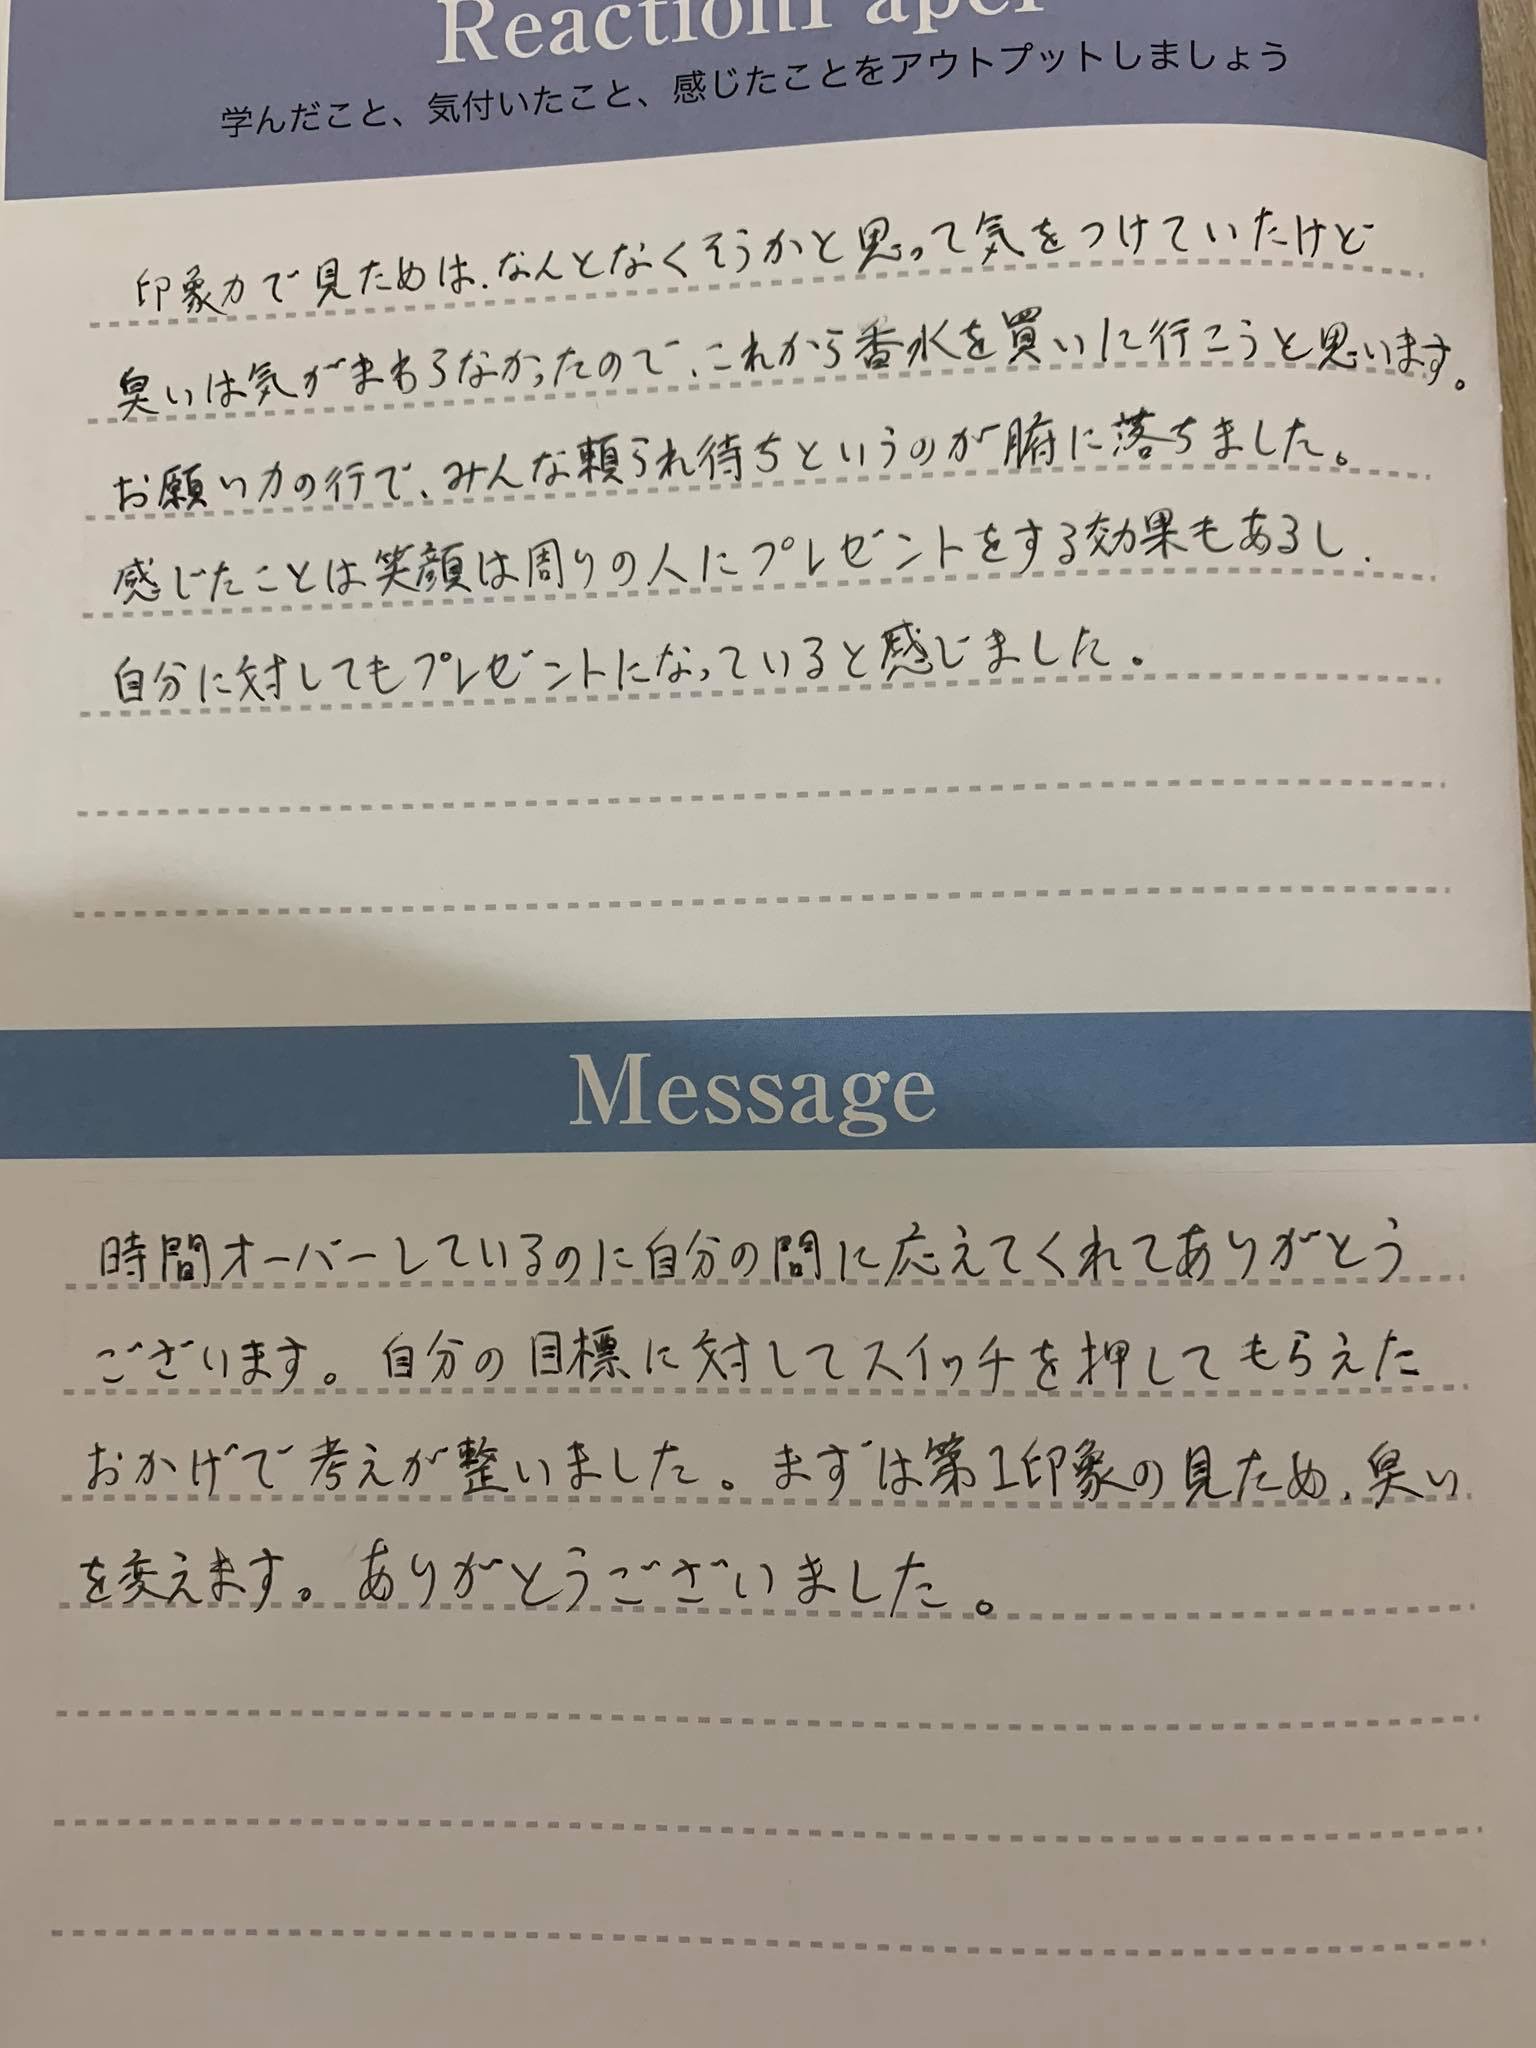 ReactionPaper
学んだこと、気付いたこと、感じたことをアウトプットしましょう
印象力で見ためは、なんとなくそうかと思って気をつけていたけど
臭いは気がまわらなかったので、これから香水を買いに行こうと思います。
お願い力の行で、みんな頼られ待ちというのが腑に落ちました。
感じたことは笑顔は周りの人にプレゼントをする効果もあるし、
自分に対してもプレゼントになっていると感じました。
Message
時間オーバーしているのに自分の問に応えてくれてありがとう
ございます。自分の目標に対してスイッチを押してもらえた
おかげで考えが整いました。まずは第1印象の見ため、臭い
を変えます。ありがとうございました。